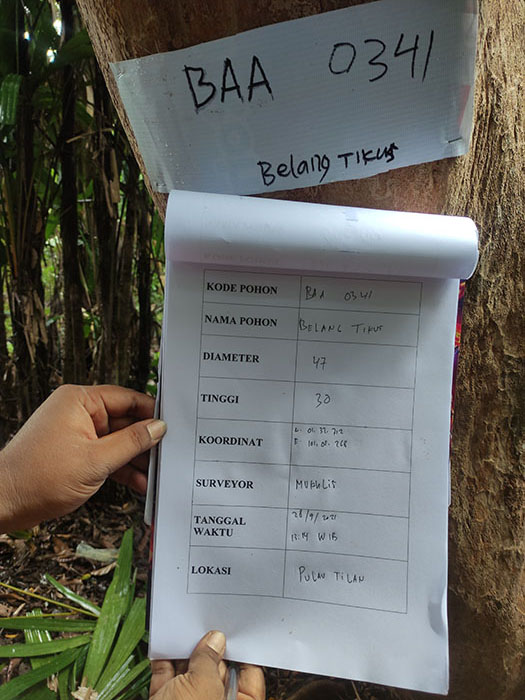 BAA 0341
Belang TIKUS
KODE POHON BAA 0341
NAMA POHON BELANG TIKUS
DIAMETER 47
TINGGI 30
KOORDINAT
SURVEYOR MUKHLIS
TANGGAL WAKTU 28/9/2021
12:14 WIB
LOKASI PULAU TILAN